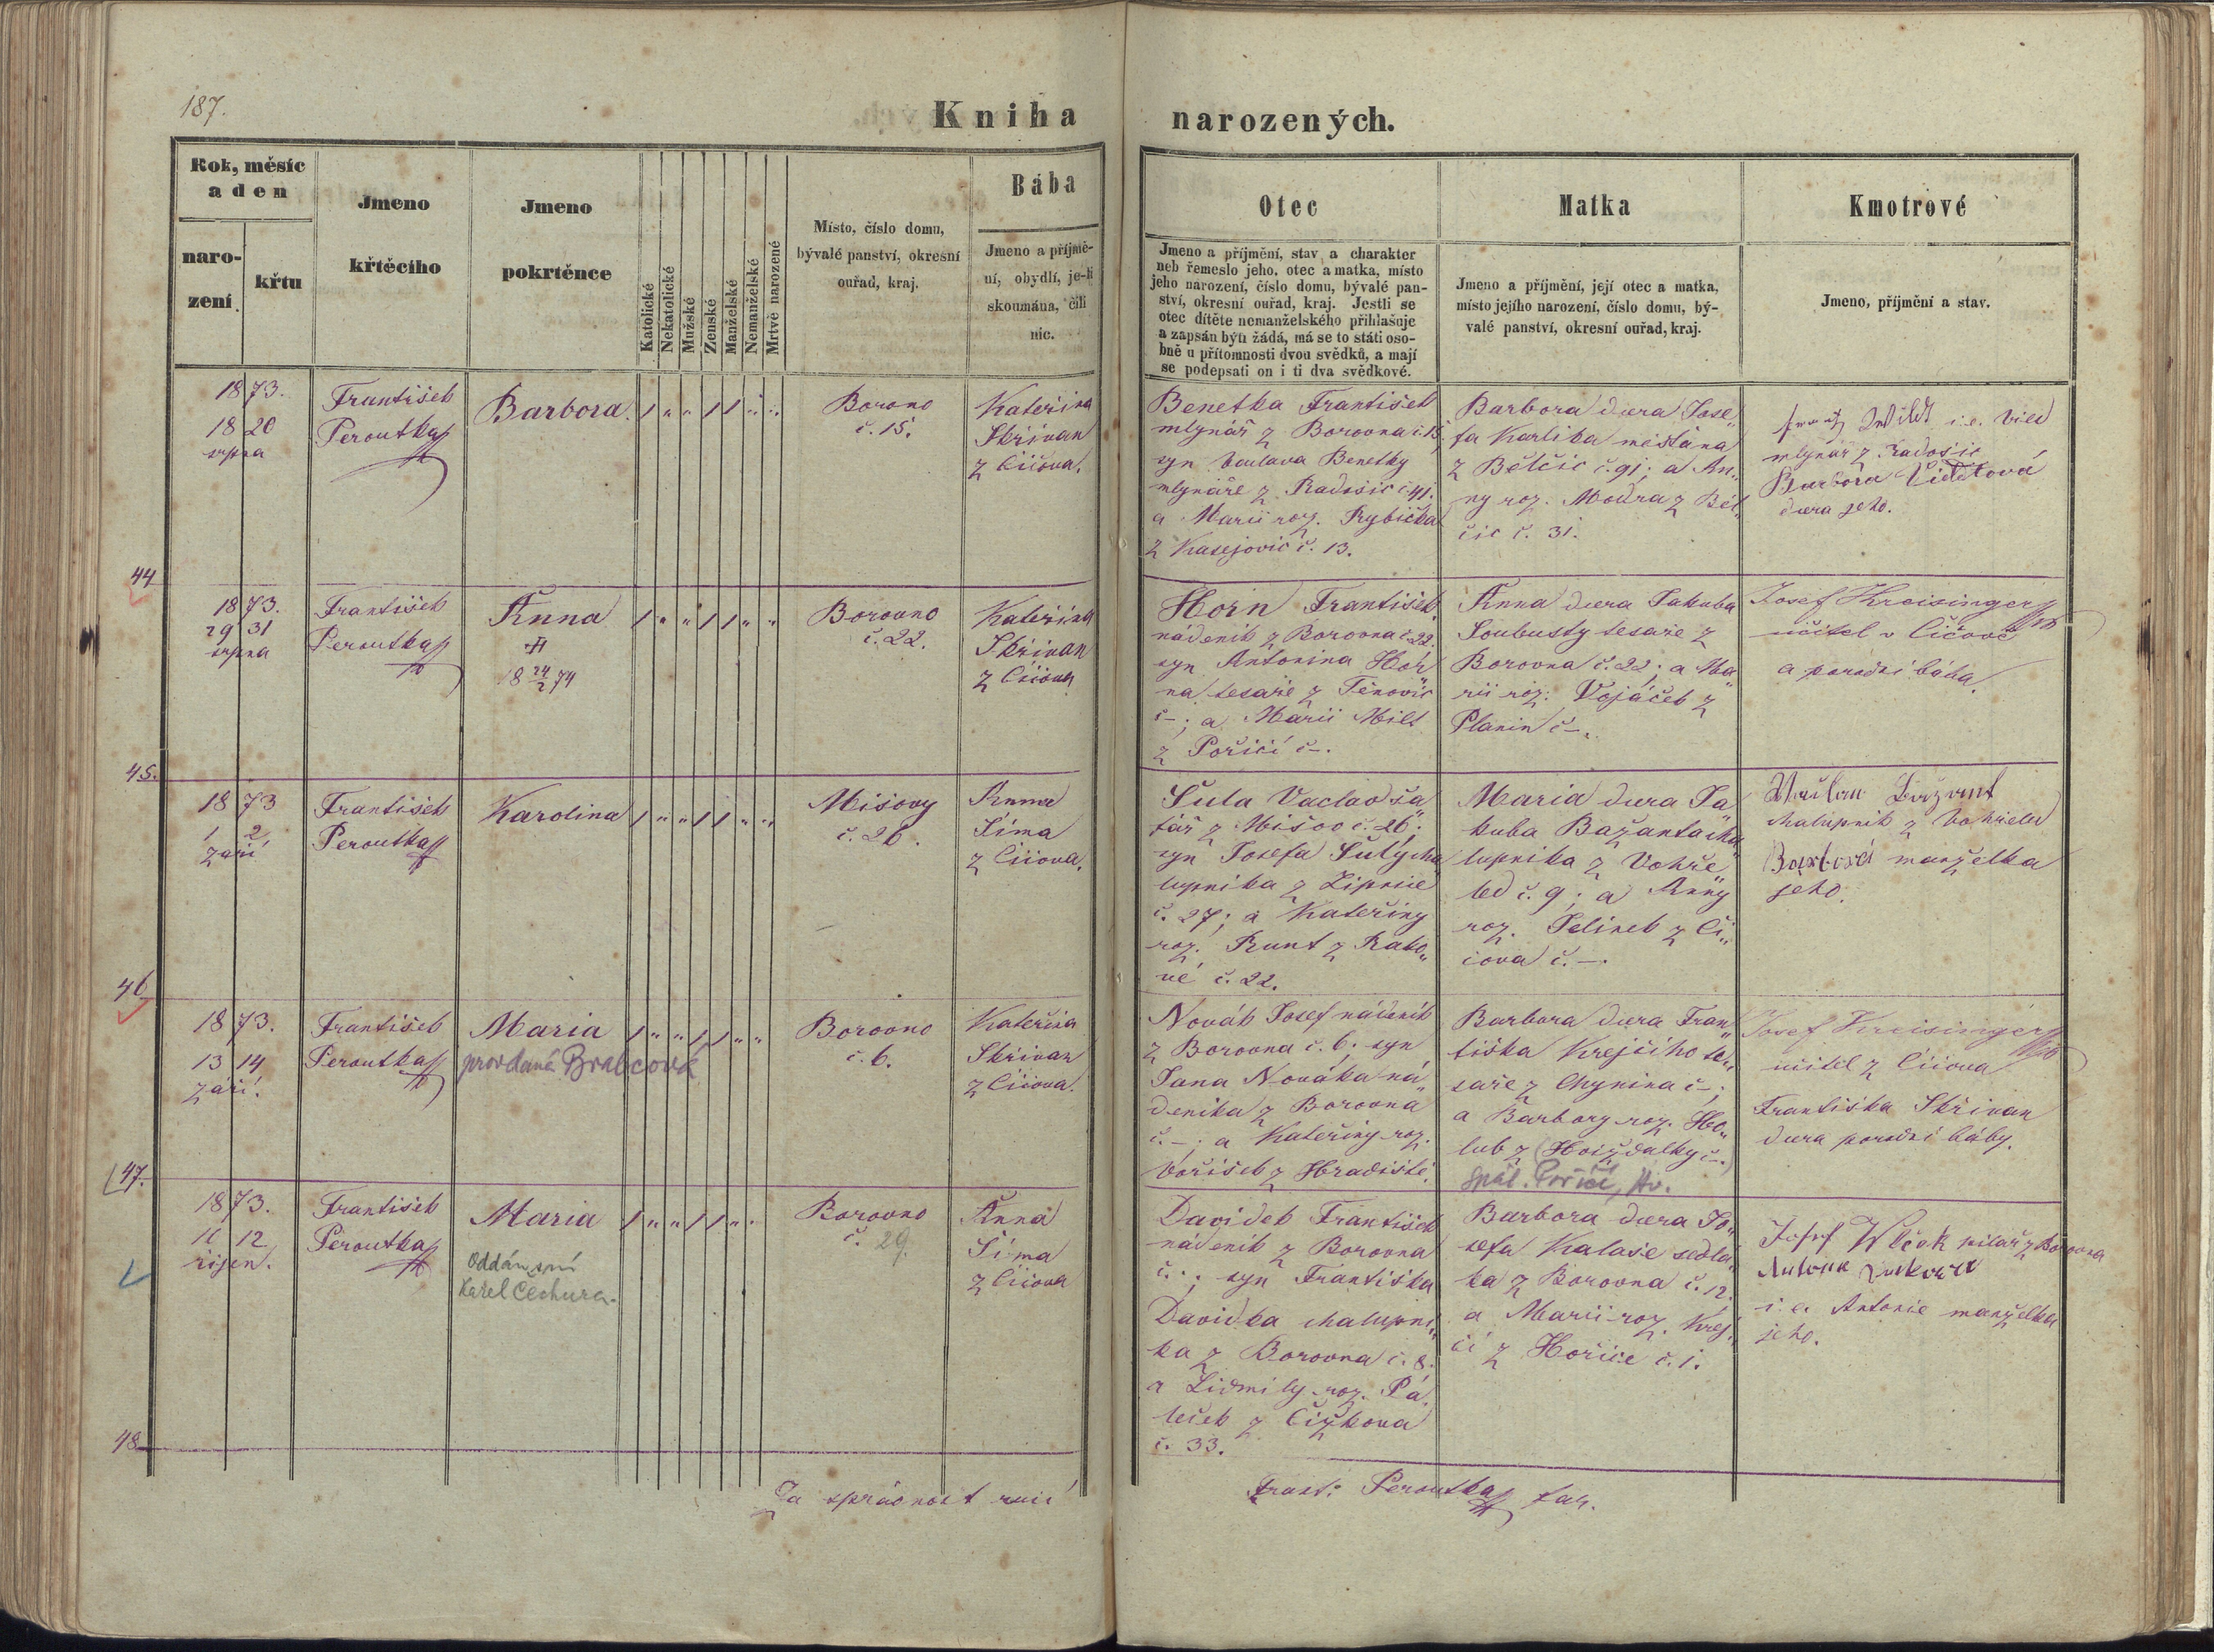 187.
Kniha narozených.
Rok, měsíc
a den
naro-
zení
křtu
Jmeno
křtěcího
Jmeno
pokrtěnce
Katolické
Nekatolické
Mužské
Ženské
Manželské
Nemanželské
Mrtvě narozené
Místo, číslo domu,
bývalé panství, okresní
ouřad, kraj.
Bába
Jmeno a příjmě-
ní, obydlí, je-li
skoumána, čili
nic.
Otec
Jmeno a příjmění, stav a charakter
neb řemeslo jeho, otec a matka, místo
jeho narození, číslo domu, bývalé pan-
ství, okresní ouřad, kraj. Jestli se
otec dítěte nemanželského přihlašuje
a zapsán býti žádá, má se to státi oso-
bně u přítomnosti dvou svědků, a mají
se podepsati on i ti dva svědkové.
Matka
Jmeno a příjmění, její otec a matka,
místo jejího narození, číslo domu, bý-
valé panství, okresní ouřad, kraj.
Kmotrové
Jmeno, příjmění a stav.
1873.
18 20
srpna
František
Peroutka
Barbora.
1 " " 1 1 " "
Borovno
č. 15.
Kateřina
Skřivan
z Číčova.
Benetka František
mlynář z Borovna č. 15,
syn Václava Benetky
mlynáře z Radošic č. 41.
a Marii roz. Rybička
z Kasejovic č. 13.
Barbora dcera Jose„
fa Karlíka měšťana
z Bělčic č. 91; a An„
ny roz. Moudra z Běl„
čic č. 31.
Wildt i.e. Vild
mlynář z Radošic
Barbora Vildtová
dcera jeho.
44
1873.
29 31
srpna
František
Peroutka
Anna
18 24/2 74
1 " " 1 1 " "
Borovno
č. 22.
Kateřina
Skřivan
z Číčova
Horn František
nádeník z Borovna č. 22.
syn Antonína Hor„
na tesaře z Těnovic
č –; a Marii Milt
z Poříčí č –.
Anna dcera Jakuba
Soubusty tesaře z
Borovna č. 22; a Ma„
rii roz. Vojáček z
Planin č –.
Josef Kreisinger
učitel v Číčově
a porodní bába.
45.
1873
1 2
září
František
Peroutka
Karolina
1 " " 1 1 " "
Mišovy
č. 26.
Anna
Síma
z Číčova.
Šula Vaclav ša„
fář z Mišov č. 26;
syn Josefa Šuly cha„
lupníka z Lipnice
č. 27; a Kateřiny
roz. Runt z Rako„
vé č. 22.
Maria dcera Ja„
kuba Bažanta cha„
lupníka z Vohře„
led č. 9; a Anny
roz. Jelinek z Čí„
čova č. –.
Bažant
chalupník z Vohřeled
Barbora manželka
jeho.
46
1873.
13 14
září.
František
Peroutka
Maria
provdaná Brabcová
1 " " 1 1 " "
Borovno
č. 6.
Kateřina
Skřivan
z Číčova.
Novák Josef nádeník
z Borovna č. 6. syn
Jana Nováka ná„
deníka z Borovna
č. –; a Kateřiny roz.
Voříšek z Hradiště.
Barbora dcera Fran„
tiška Krejčího te„
saře z Chynína č –;
a Barbory roz. Ho„
lub z (Hvížďalky č –.)
Spál. Poříčí, Hv.
Josef Kreisinger
učitel z Číčova
Františka Skřivan
dcera porodní báby.
47.
1873.
11 12
říjen.
František
Peroutka
Maria
Oddán s ní
Karel Čechura.
1 " " 1 1 " "
Borovno
č. 29.
Anna
Síma
z Číčova
Davídek František
nádeník z Borovna
č. ; syn Františka
Davídka chalupní„
ka z Borovna č. 8.
a Lidmily roz. Pa„
leček z Čížkova
č. 33.
Barbora dcera Jo„
sefa Kalaše sedlá„
ka z Borovna č. 12.
a Marii roz. Krej„
čí z Hořice č. 1.
Josef Wlček pilař z Borovna
i.e. Antonie manželka
jeho.
48
Za správnost ručí Frant. Peroutka far.